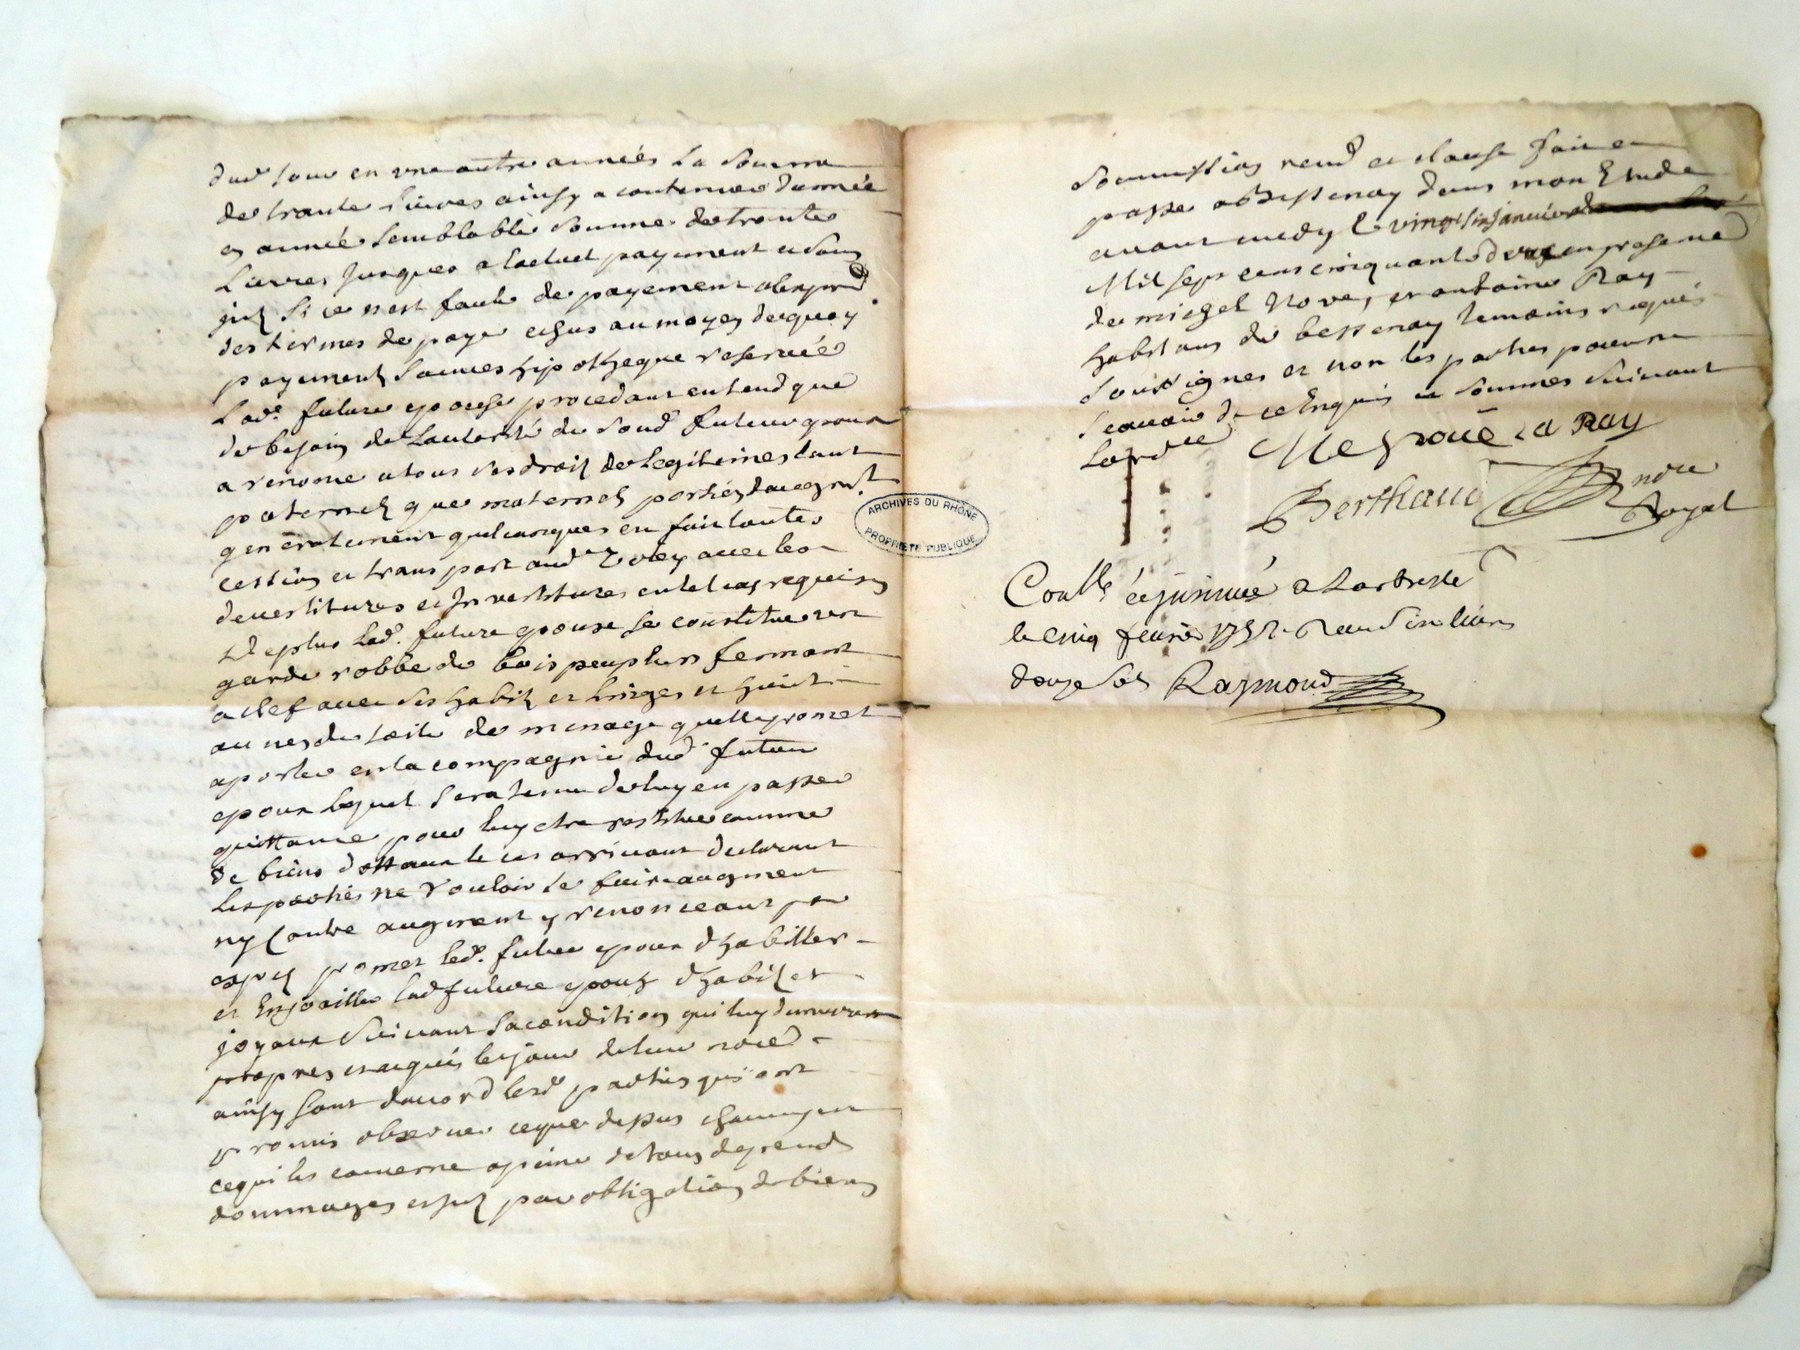 dud jour en une autre années la somme
de trante livres ainsy a continuer d'année
en année semblable somme de trante
livres jusques a lactuel payement
si ce n'est faute de payement
des termes de paye echus au moyen dequoy
payement sauves hipotheque reservée
lad.e future epouse procedant entend que
de besoin de l'autorité du sond futur epoux
a renonce a tous ses droits de legitimes tant
paternels que maternels
generalement quelconques en fait toutes
cession et transport aud avec les
devestitures et investitures en tel cas requises
de plus lad. future epouse se constitue une
garde robbe de bois peuplier fermant
a clef avec ses habits et linges et huict
aunes de toile de menage quelle promet
aporter en la compagnie dud futur
epoux lequel sera tenu de luy en passer
quittance pour luy etre restitué comme
de biens dottaux le cas arrivant declarant
les parties ne vouloir se faire augment
ny contre augment y renonceant par
exprès promet led. futur epoux d'habiller
et enjoailler lad future epouse d'habits et
joyaux suivant sa condition qui luy demeureront
propres et acquis le jour de leur noces
ainsy sont d'accord lesd parties qui ont
promis observer ce que dessus chacun en
ce qui les concerne a peine de tous depends
dommages et par obligation de biens
soumission rend et clause fait et
passé a Bessenay dans mon Etude
avant midy le vingt six janvier
Mil sept cens cinquante deux en presence
de michel Nové, et antoine Ray
habitans de bessenay temoins requis
soussignes et non les parties pour ne
scavoir de ce Enquis et sommés suivant
lordce
M Nové A Ray
Berthaud nore
Royal
Conllé et insinué a Larbresle
le cinq fevrier 1752 Reçu six livres
douze sols Raymond
ARCHIVES DU RHÔNE
PROPRIÉTÉ PUBLIQUE